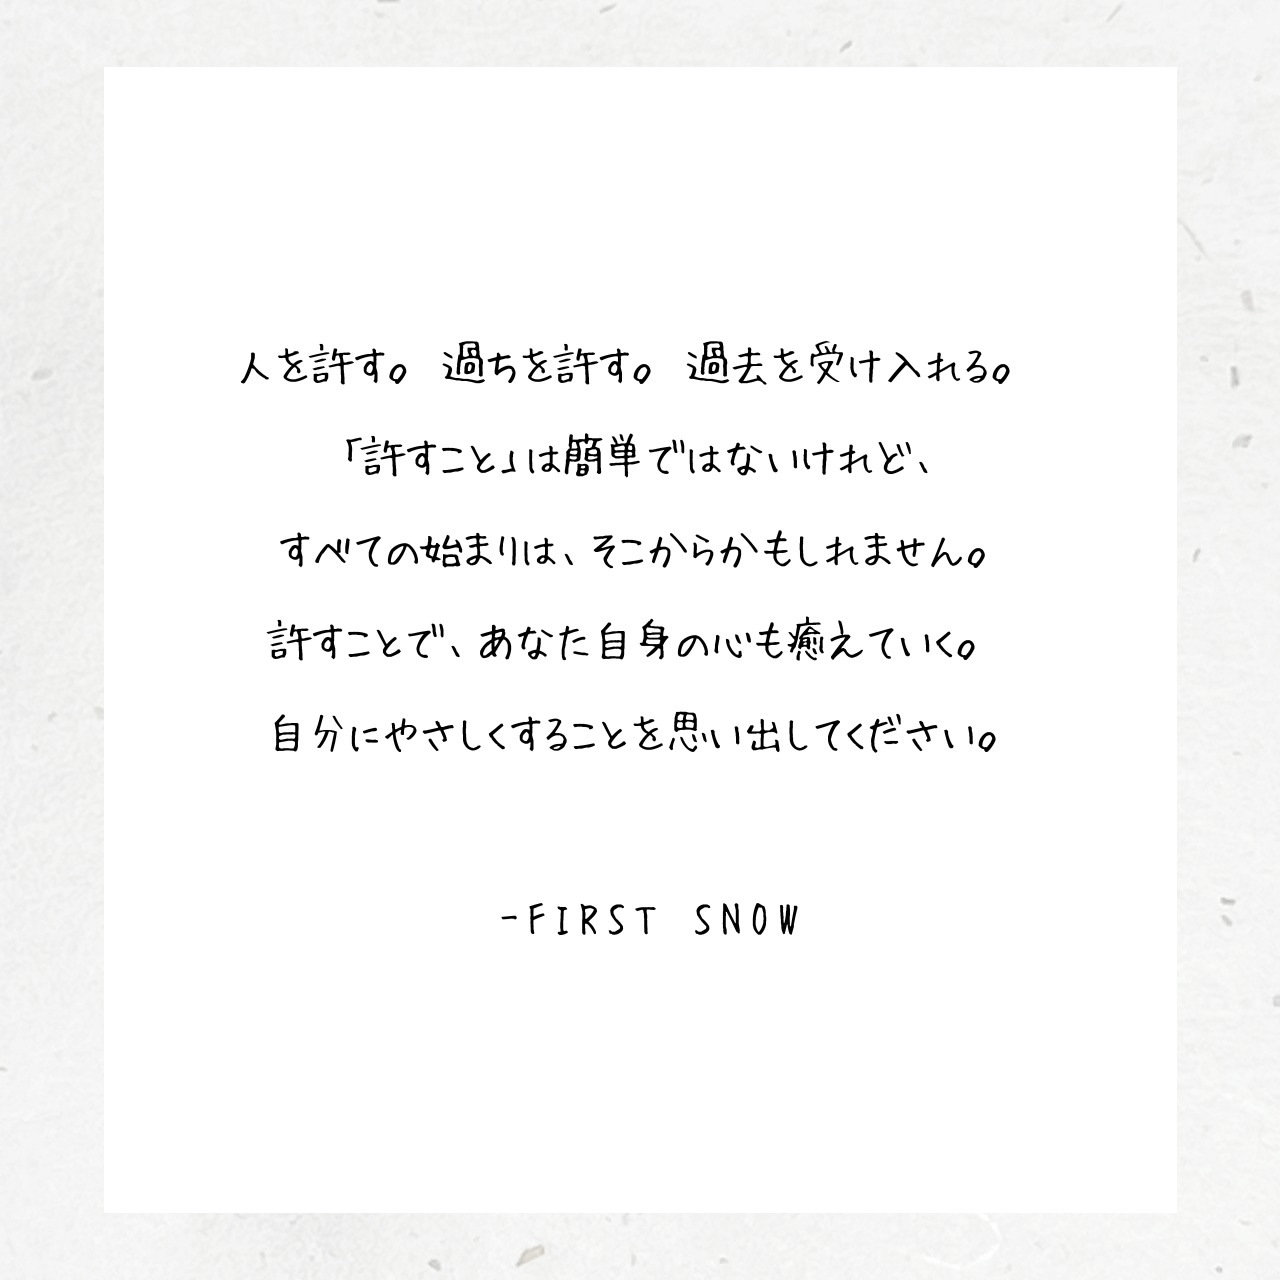 人を許す。 過ちを許す。 過去を受け入れる。
「許すこと」は簡単ではないけれど、
すべての始まりは、そこからかもしれません。
許すことで、あなた自身の心も癒えていく。
自分にやさしくすることを思い出してください。
-FIRST SNOW